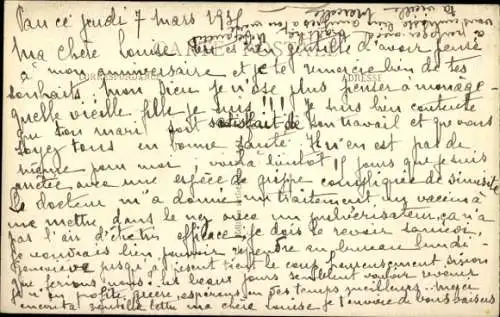 ce jeudi 7 mars
Ma chère Louise es bien gentille d'avoir pensé
à mon anniversaire et je te remercie bien de tes
souhaits mon Dieu je n'ose plus penser à mon age
quelle vieille fille je suis !!!! Je suis bien contente
que ton mari soit satisfait de son travail et que vous
soyez tous en bonne santé. Il n'en est pas de
même pour moi, voilà bientôt jours que je suis
arrêtée avec une espèce de grippe compliquée de sinusite
le docteur m'a donné un traitement, un vaccin à
me mettre dans le nez avec un pulvérisateur, ça n'a
pas l'air d'être efficace, je dois le revoir samedi,
je voudrais bien pouvoir reprendre au bureau lundi
Geneviève jusqu'à présent tient le coup heureusement, sinon
que ferions nous. Les beaux jours semblent vouloir revenir
je n'en profite guère, espérons en des temps meilleurs.
ma chère Louise je t'envoie de bons baisers
la vieille
CARTE POSTALE
CORRESPONDANCE
ADRESSE